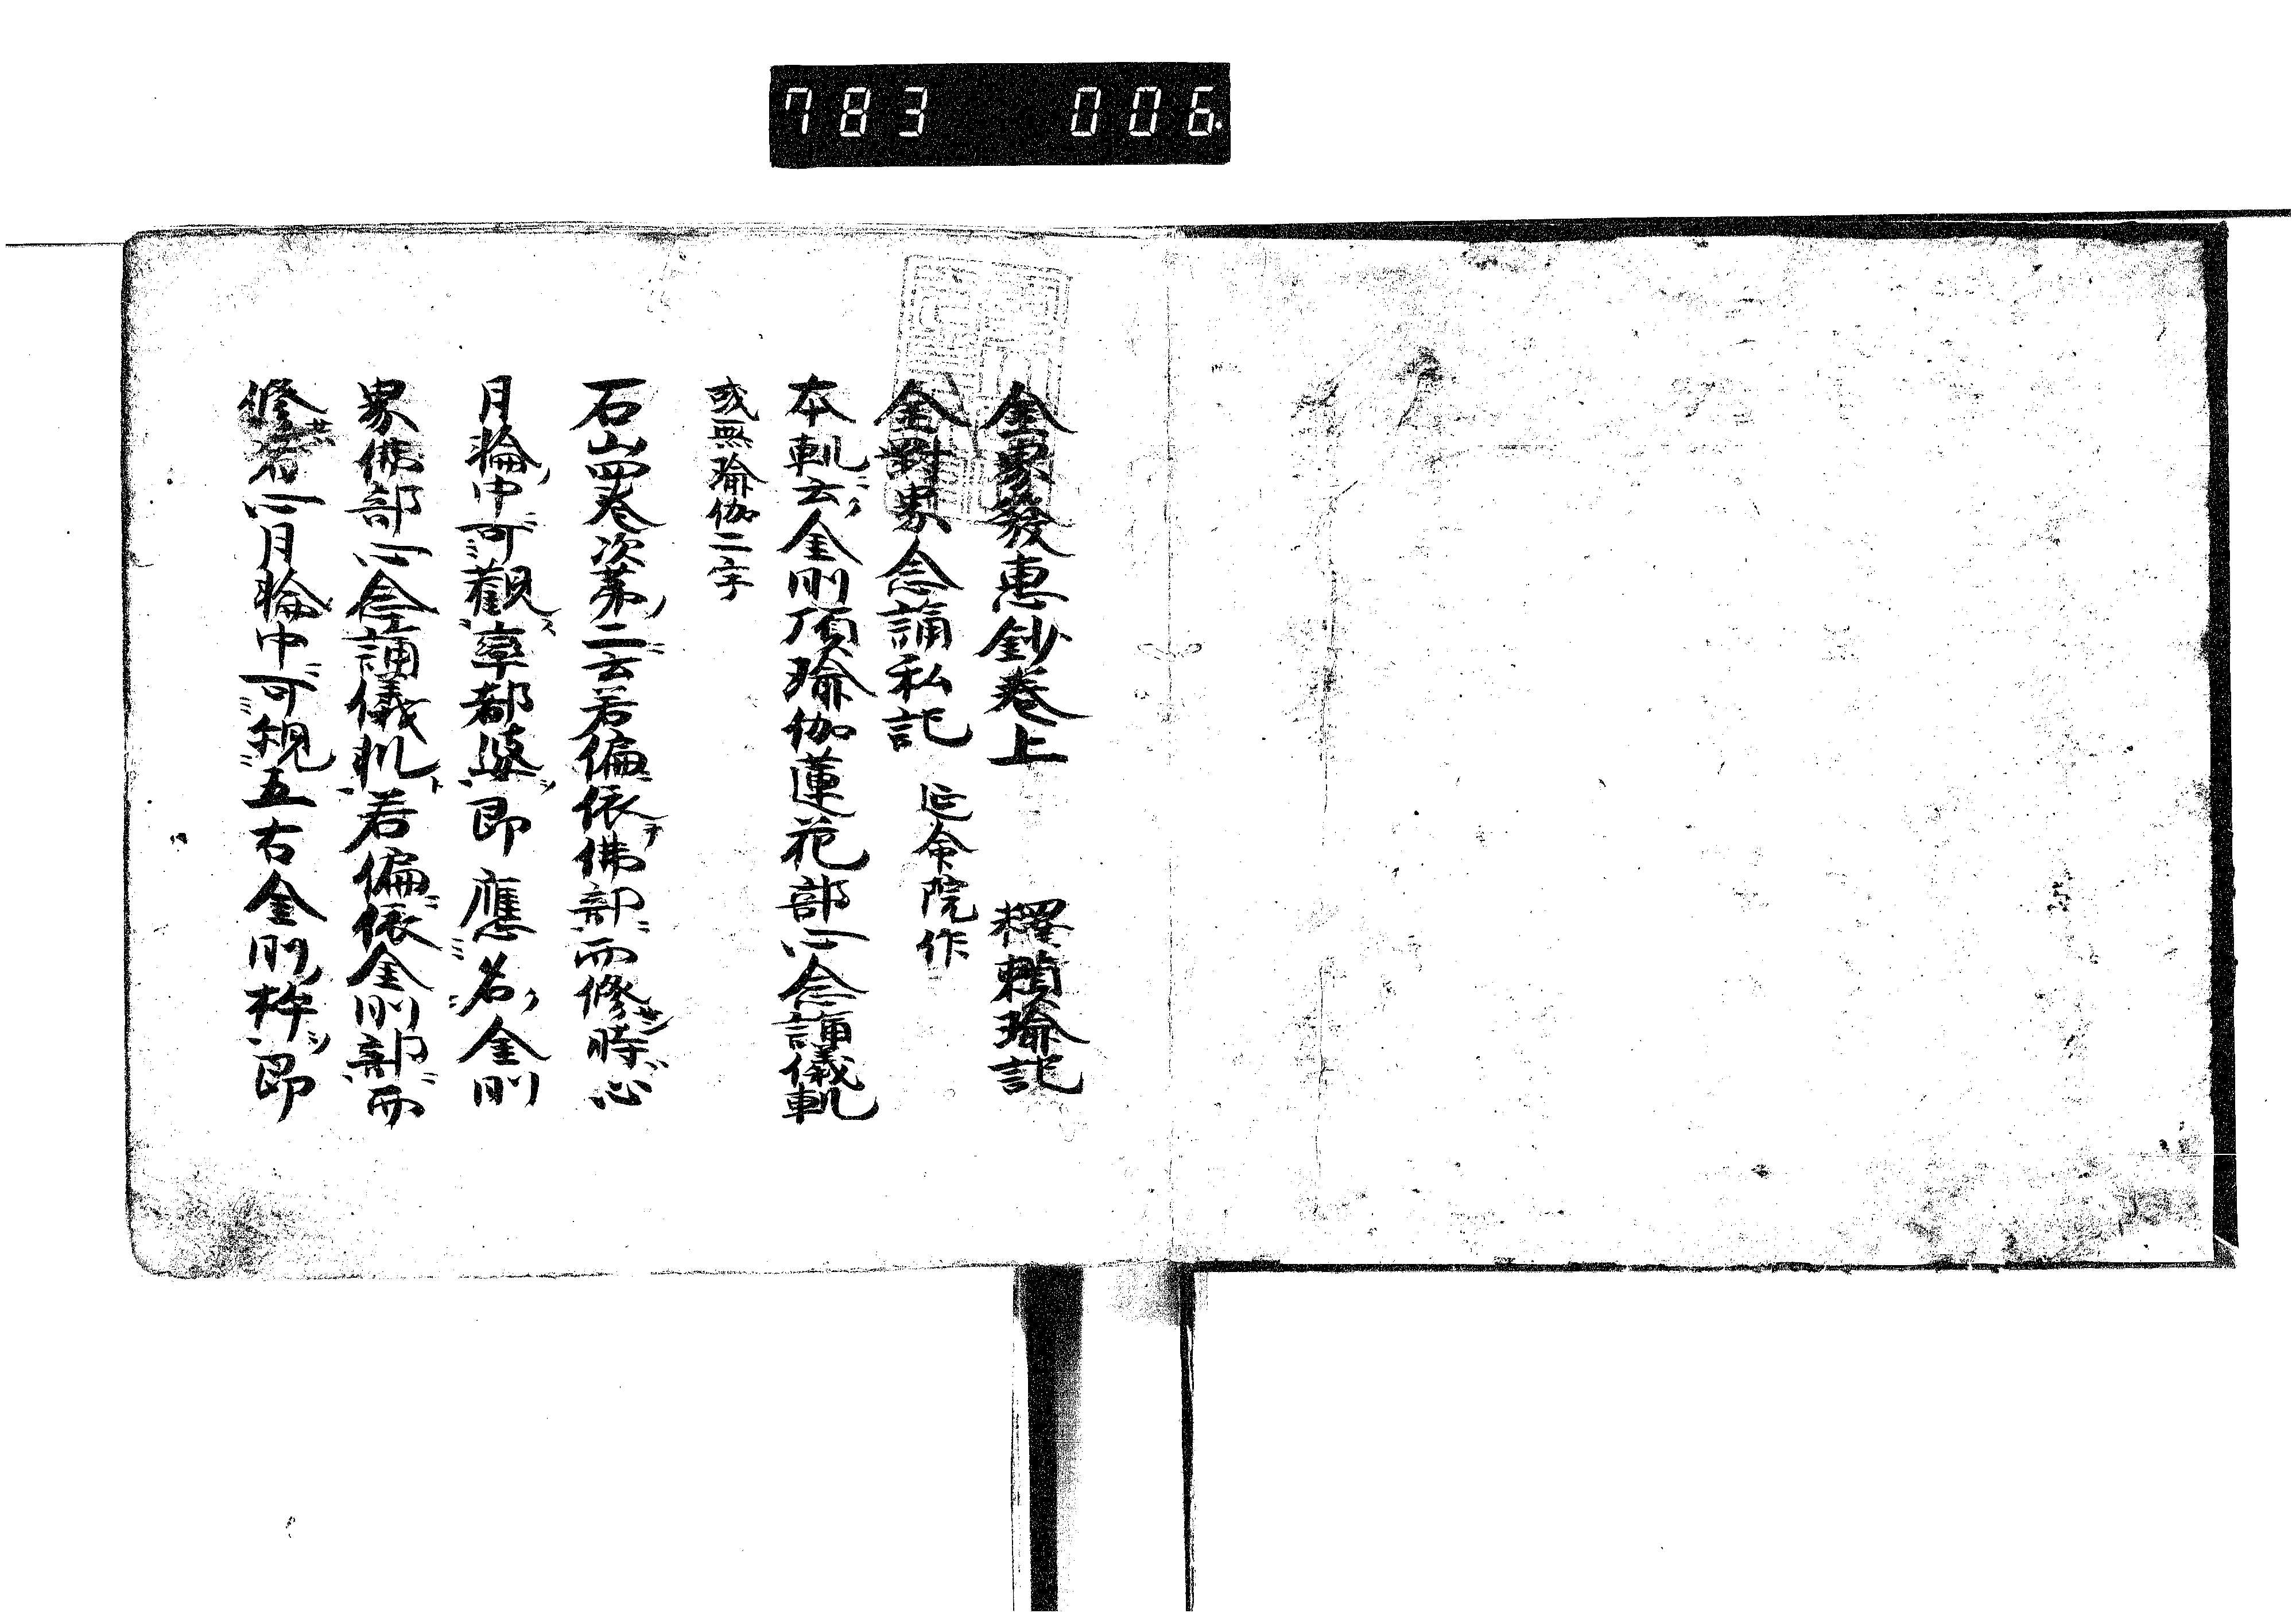 783 006
金界發惠鈔卷上 釋賴瑜記
金對界念誦私記 延命院作
本軌云金剛頂瑜伽蓮花部心念誦儀軌
或無瑜伽二字
石山四卷次第二云若偏依佛部而修時心
月輪中可觀率都婆即應名金剛
界佛部心念誦儀軌若偏依金剛部而
修者心月輪中可觀五古金剛杵即